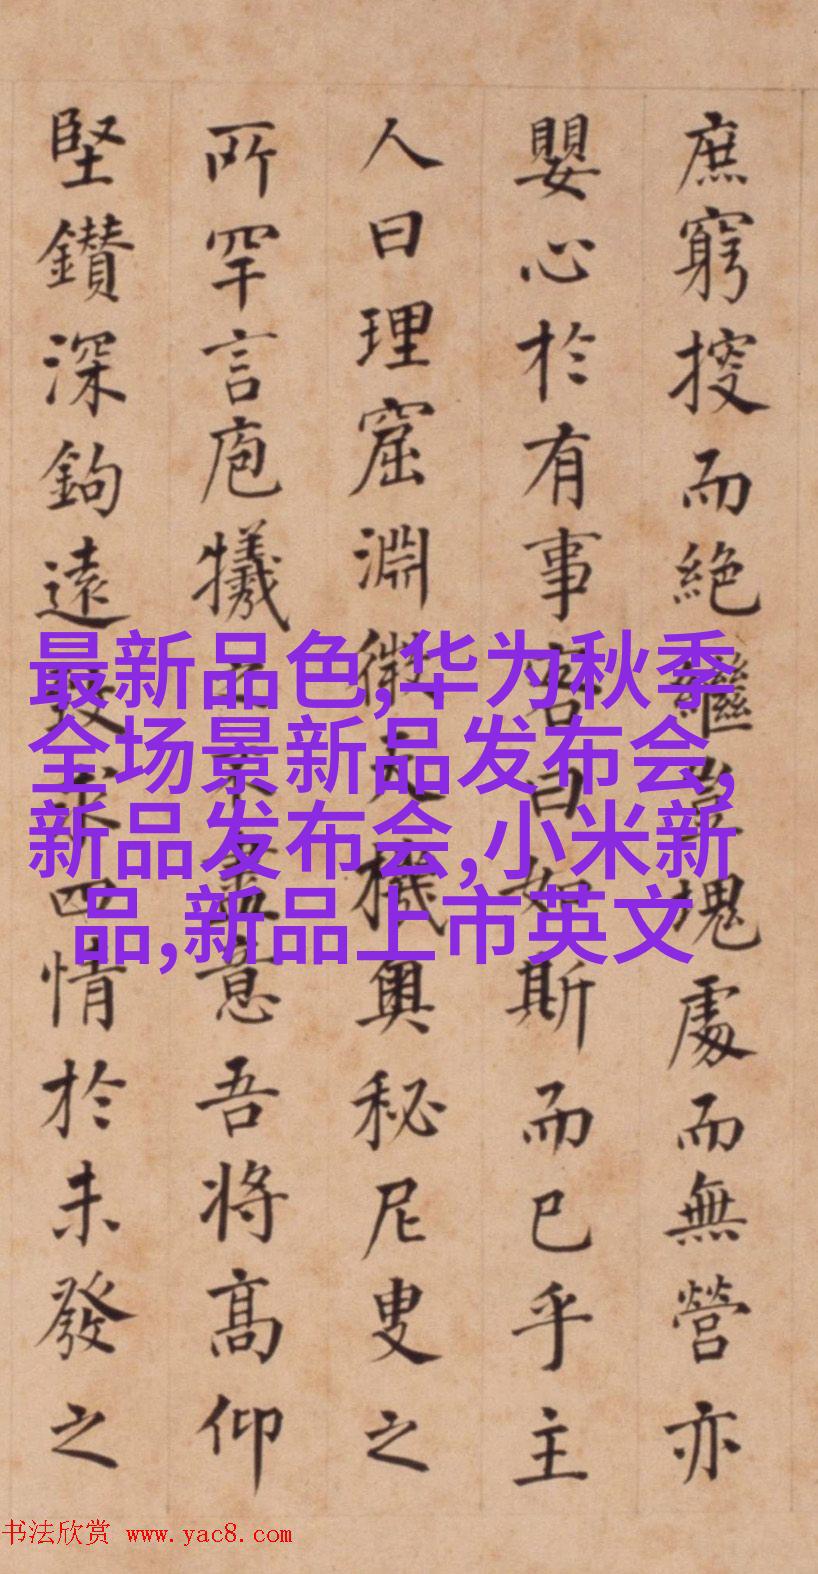 庶窮搜而絕繼豈塊處而無營亦
嬰心於有事客曰如斯而已乎主
人曰理窟淵微天機奧秘尼叟之
所罕言庖犧之不盡意吾將高仰
堅鑽深鉤遠致求四情於未發之
最新品色,华为秋季
全场景新品发布会,
新品发布会,小米新
品,新品上市英文
书法欣赏 www.yac8.com